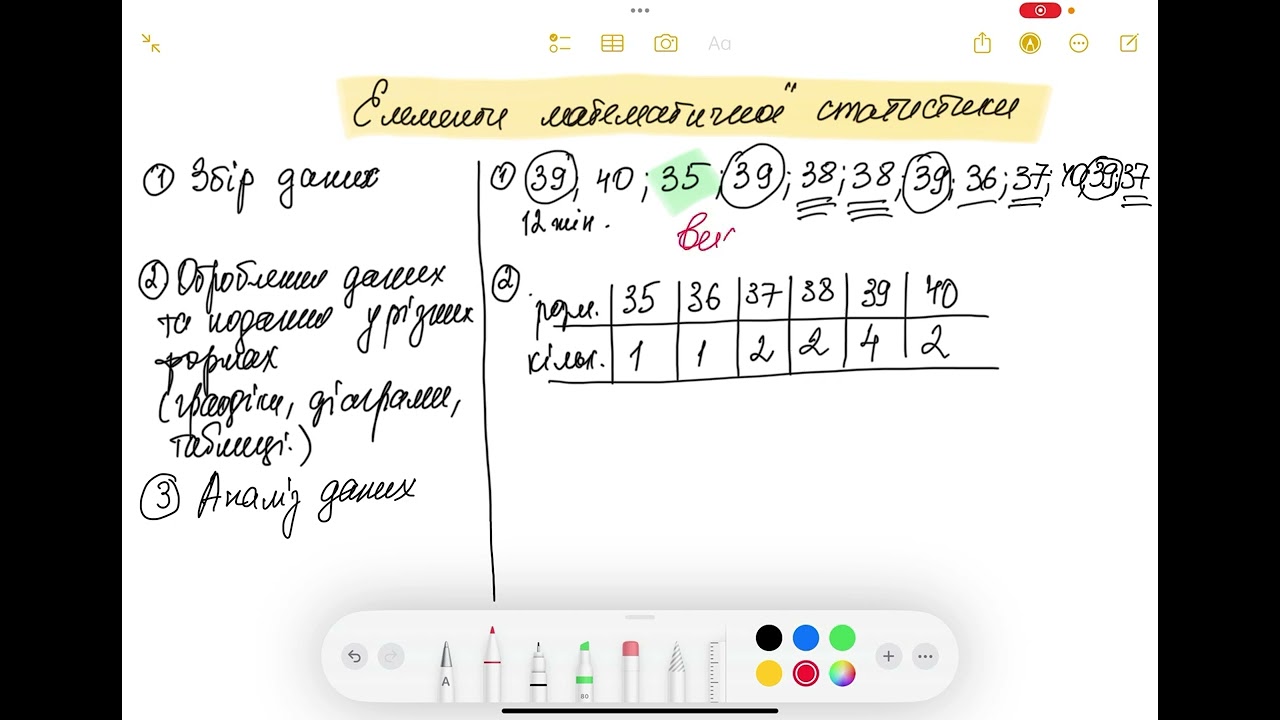 Елементи математичної статистики
① Збір даних
② Оброблення даних
та подання у різних
формах
(графіки, діаграми,
таблиці.)
③ Аналіз даних
① 39; 40; 35; 39; 38; 38; 39; 36; 37; 40; 39; 37
12 жін.
②
розм. 35 36 37 38 39 40
кільк. 1 1 2 2 4 2
Aa
A
80